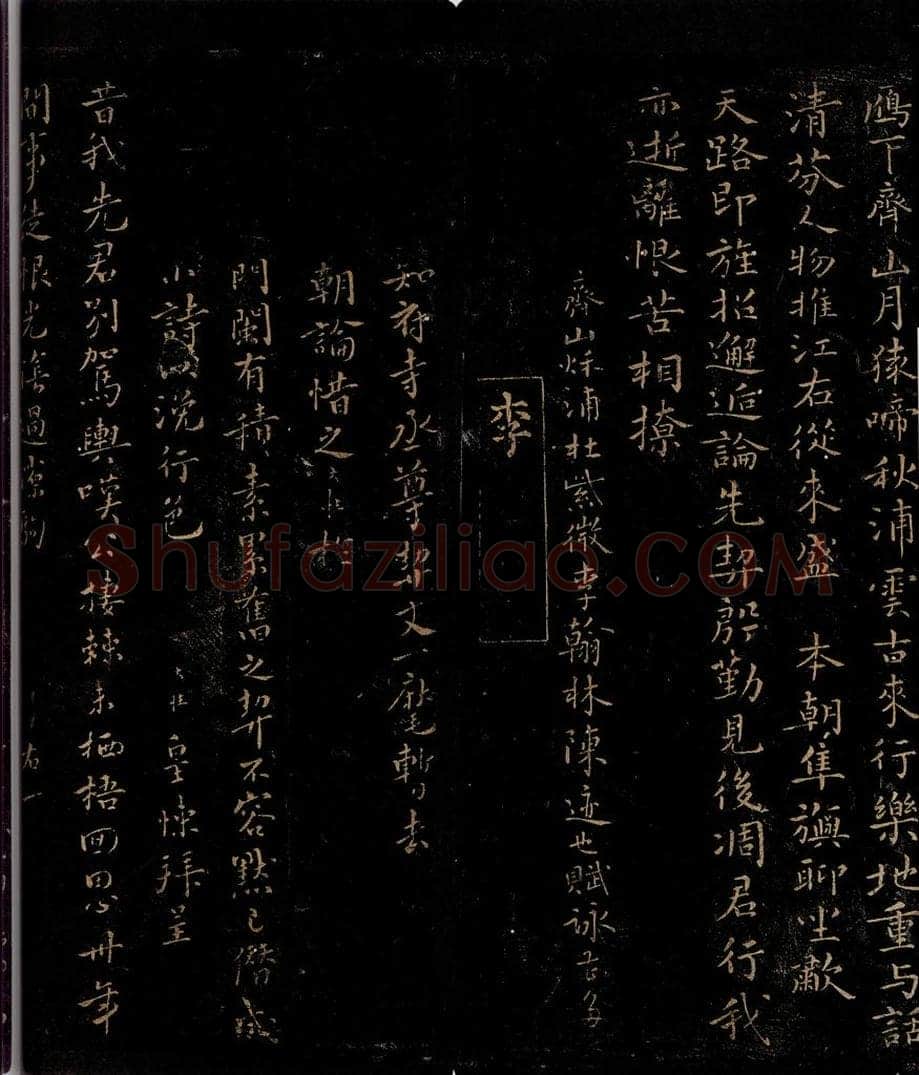 鴈下齊山月猿啼秋浦雲古來行樂地重与話
清芬人物推江右從來盛 本朝隼旟聊坐歗
天路即旌招邂逅論先契慇勤見後凋君行我
亦逝離恨苦相撩
齊山秋浦杜紫微李翰林陳迹也賦詠甚多
李
知府寺丞尊契丈一麾暫去
朝論惜之
門闌有積素累舊之契不容默已僭成
小詩四浼行色 皇悚拜呈
昔我先君別駕輿嘆公棲棘未栖梧回思卅年
間事 恨光陰過隙駒
Shufaziliao.COM